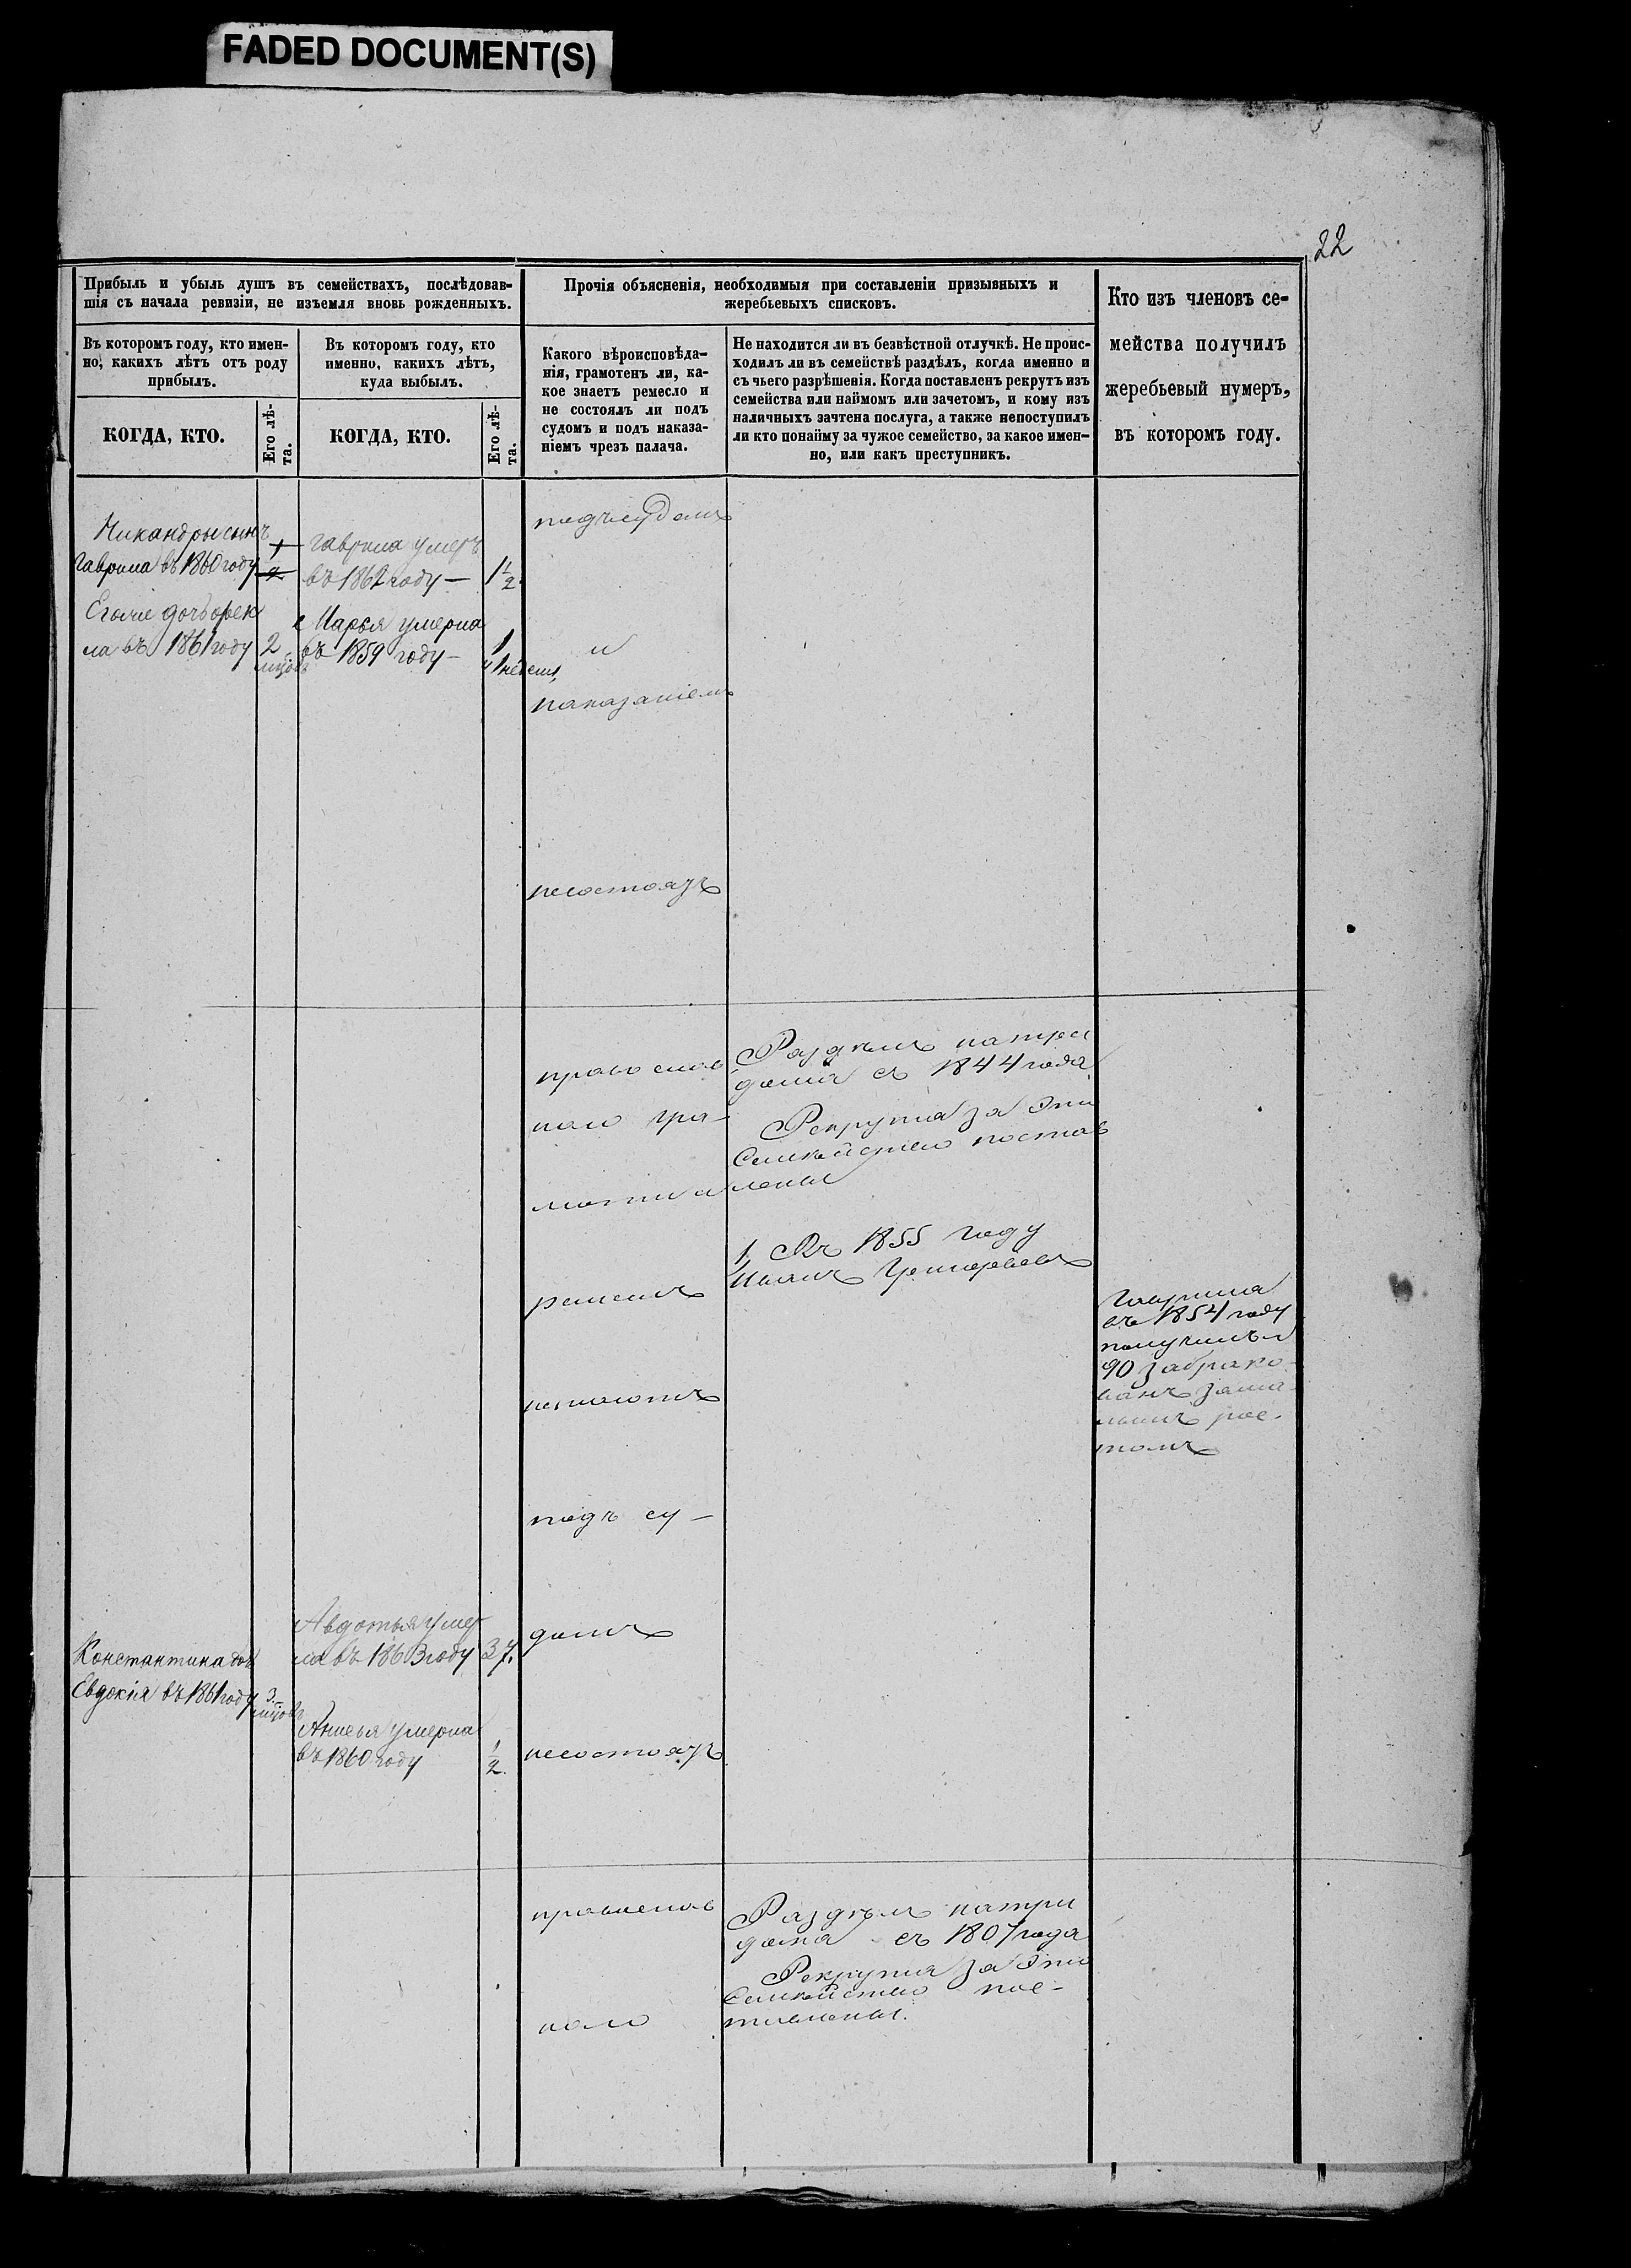 FADED DOCUMENT(S)
22
Прибыль и убыль душъ въ семействахъ, послѣдовав-
шія съ начала ревизіи, не изъемля вновь рожденныхъ.
Прочія объясненія, необходимыя при составленіи призывныхъ и
жеребьевыхъ списковъ.
Кто изъ членовъ се-
мейства получилъ
жеребьевый нумеръ,
въ которомъ году.
Въ которомъ году, кто имен-
но, какихъ лѣтъ отъ роду
прибылъ.
Въ которомъ году, кто
именно, какихъ лѣтъ,
куда выбылъ.
Какого вѣроисповѣда-
нія, грамотенъ ли, ка-
кое знаетъ ремесло и
не состоялъ ли подъ
судомъ и подъ наказа-
ніемъ чрезъ палача.
Не находится ли въ безвѣстной отлучкѣ. Не проис-
ходилъ ли въ семействѣ раздѣлъ, когда именно и
съ чьего разрѣшенія. Когда поставленъ рекрутъ изъ
семейства или наймомъ или зачетомъ, и кому изъ
наличныхъ зачтена послуга, а также непоступилъ
ли кто понайму за чужое семейство, за какое имен-
но, или какъ преступникъ.
КОГДА, КТО.
Его лѣ-
та.
КОГДА, КТО.
Его лѣ-
та.
Никандры сынъ
Гаврила въ 1860 году
1
2
Егоже дочь Фек
ла въ 1861 году
2
мцовъ
Гаврила умеръ
въ 1862 году —
1 1/2
Марья умерла
въ 1859 году —
1
и 1 недели,
подъсудомъ
и
наказаніемъ
несостоялъ
православ
наго гра-
моти а
ремеслъ
незнаютъ
подъ су —
домъ
несостоялъ
Раздѣлъ натри
дома съ 1844 года
Рекрута за Эти
Семейство постав
лены
1, Въ 1855 году
Иванъ Григорьевъ
Гаврила
въ 1854 году
получилъ
90 забрако-
ванъ зама-
лымъ рос-
томъ
Константина доч
Евдокія въ 1861 году
3
мцовъ
Авдотья умер
ла въ 1863 году
37.
Анисья умерла
въ 1860 году
1/2.
православ
наго
Раздѣлъ натри
дома съ 1807 года
Рекрута за Эти
Семейство пос-
тавлены.